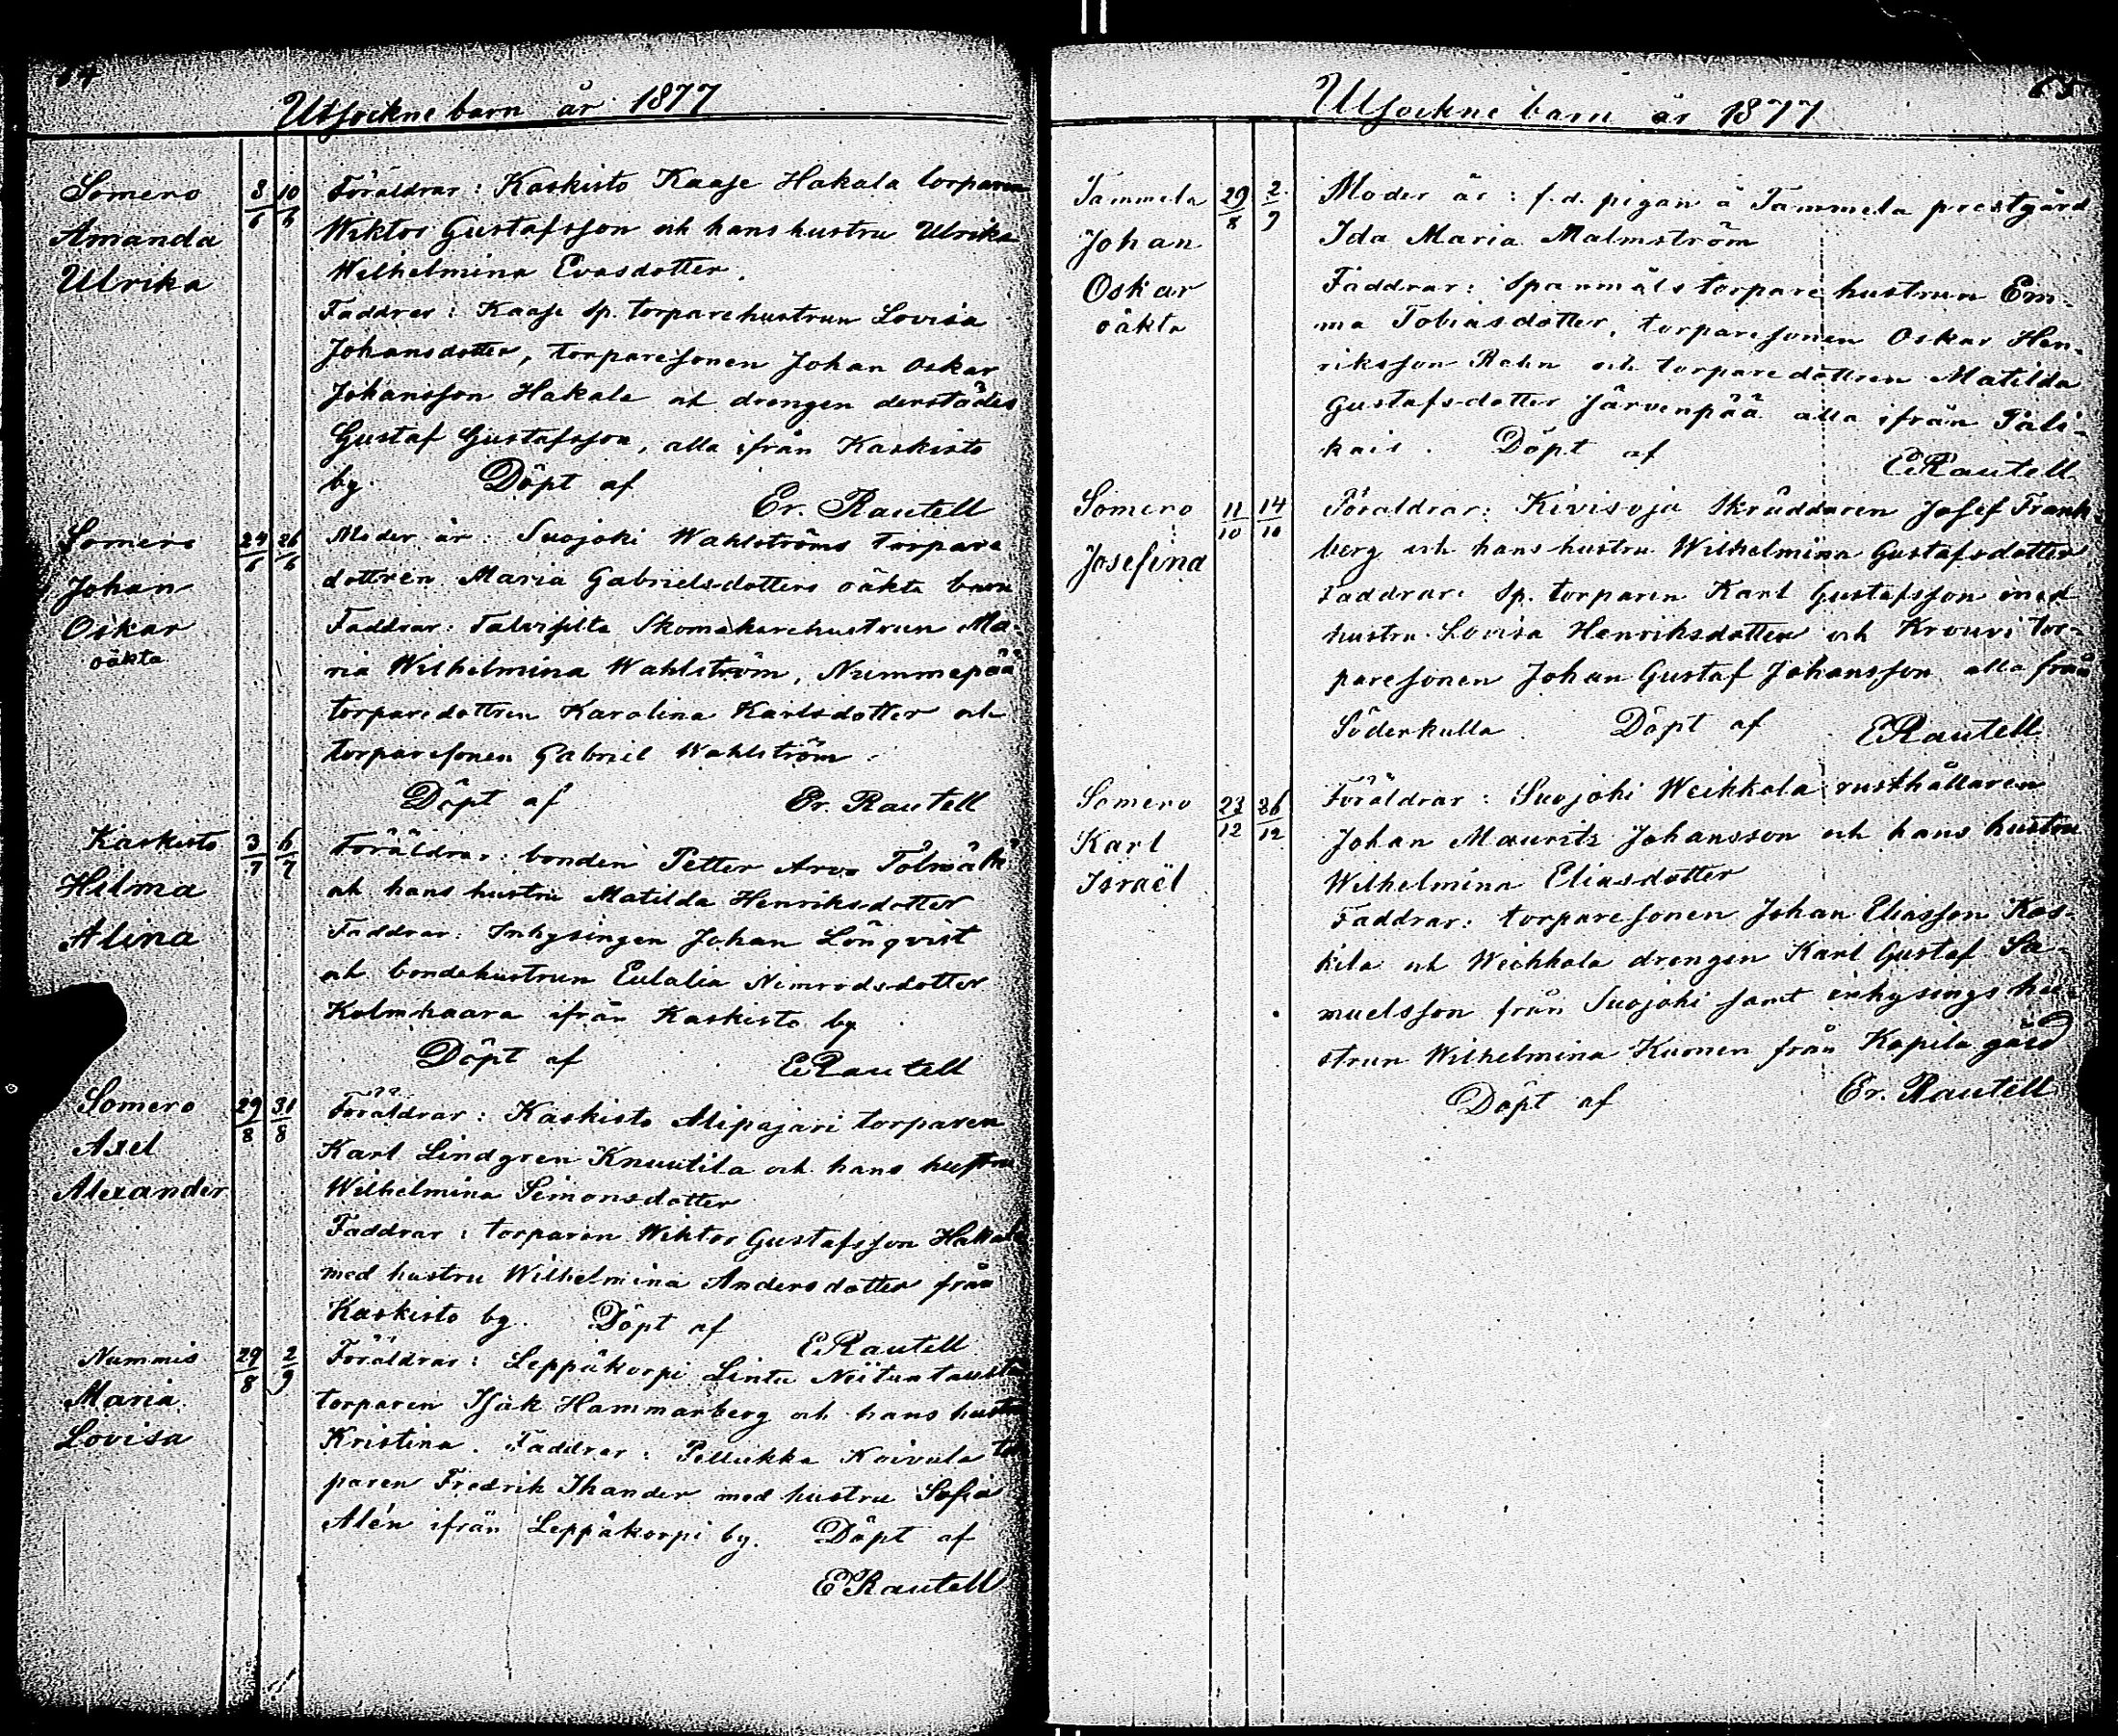 Utsockne barn år 1877
Somero 8/6 10/6 Föräldrar: Kaskisto Kaase Hakala torparen
Amanda Wiktor Gustafsson och hans hustru Ulrika
Ulrika Wilhelmina Evasdotter.
Faddrar: Kaase sp. torparehustrun Lovisa
Johansdotter, torparesonen Johan Oskar
Johansson Hakala och drengen derstädes
Gustaf Gustafsson, alla ifrån Kaskisto
by. Döpt af
Er. Rautell
Somero 24/6 26/6 Moder är: Suojoki Wahlströms torpare
Johan dottren Maria Gabrielsdotters oäkta barn
Oskar Faddrar: Talvisilta Skomakarehustrun Ma-
oäkta ria Wilhelmina Wahlström, Nummepää
torparedottren Karolina Karlsdotter och
torparesonen Gabriel Wahlström.
Döpt af Er. Rautell
Kaskisto 3/7 6/7 Föräldrar: bonden Petter Arvo Tolmäki
Hilma och hans hustru Matilda Henriksdotter
Alina Faddrar: Inhysingen Johan Lönqvist
och bondehustrun Eulalia Nimrodsdotter
Kolmhaara ifrån Kaskisto by
Döpt af ERautell
Somero 29/8 31/8 Föräldrar: Kaskisto Alipajari torparen
Axel Karl Lindgren Knuutila och hans hustru
Alexander Wilhelmina Simonsdotter
Faddrar: torparen Wiktor Gustafsson Hakala
med hustru Wilhelmina Andersdotter från
Kaskisto by. Döpt af
ERautell
Nummis 29/8 2/9 Föräldrar: Leppäkorpi Lintu Niituntausta
Maria torparen Isak Hammarberg och hans hustru
Lovisa Kristina. Faddrar: Pellukka Koivula tor
paren Fredrik Ihander med hustru Sofia
Alén ifrån Leppäkorpi by. Döpt af
ERautell
65
Utsockne barn år 1877
Tammela 29/8 2/9 Moder är: f.d. pigan å Tammela prestgård
Johan Ida Maria Malmström
Oskar Faddrar: Spanmåls torpare hustrun Em-
oäkta ma Tobiasdotter, torparesonen Oskar Hen-
riksson Rahn och torparedottren Matilda
Gustafsdotter Järvenpää alla ifrån Pali-
kais. Döpt af
ERautell
Somero 11/10 14/10 Föräldrar: Kivisoja Skräddaren Josef Frank-
Josefina berg och hans hustru Wilhelmina Gustafsdotter
Faddrar: Sp. torparen Karl Gustafsson med
hustru Lovisa Henriksdotter och Krouvi tor-
paresonen Johan Gustaf Johansson alla från
Söderkulla. Döpt af ERautell
Somero 23/12 26/12 Föräldrar: Suojoki Weikkola rusthållaren
Karl Johan Maurits Johansson och hans hustru
Israël Wilhelmina Eliasdotter
Faddrar: torparesonen Johan Eliasson Kos-
kila och Weikkola drengen Karl Gustaf Sa-
muelsson från Suojoki samt inhysings hu-
strun Wilhelmina Kumen från Kopila gård
Döpt af Er. Rautell